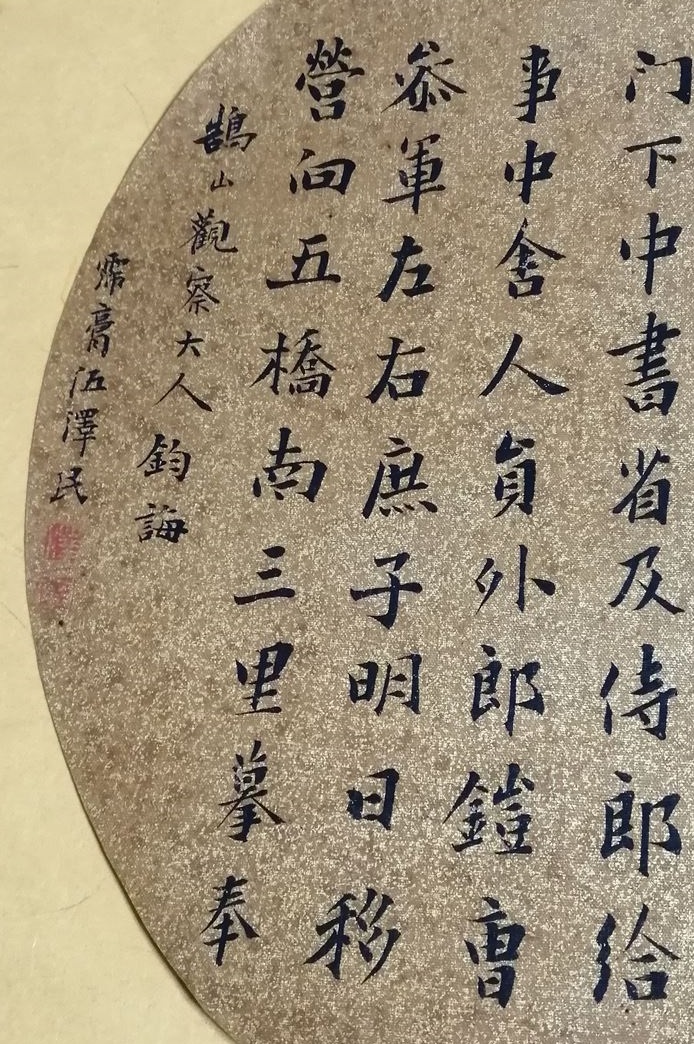 门下中書省及侍郎給
事中舍人員外郎鎧曹
叅軍左右庶子明日移
營向五橋南三里摹奉
鵠山觀察大人鈞誨
霈膏伍澤民